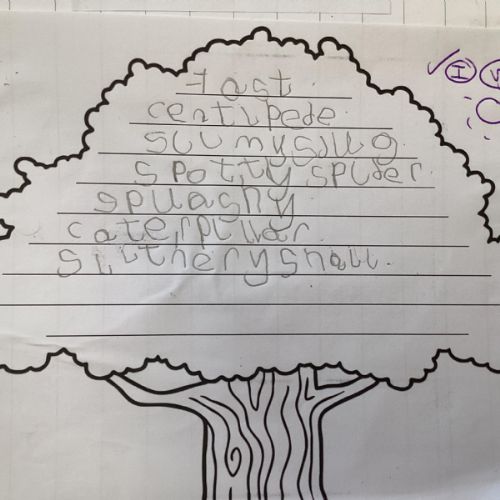 Fast
centipede
slimy slug
spotty spider
splashy
caterpillar
slithery snail.